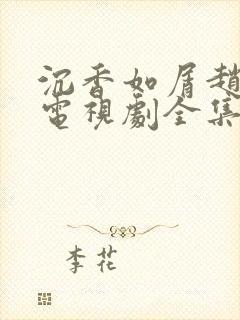 沉香如屑趙
電視劇全集
李花